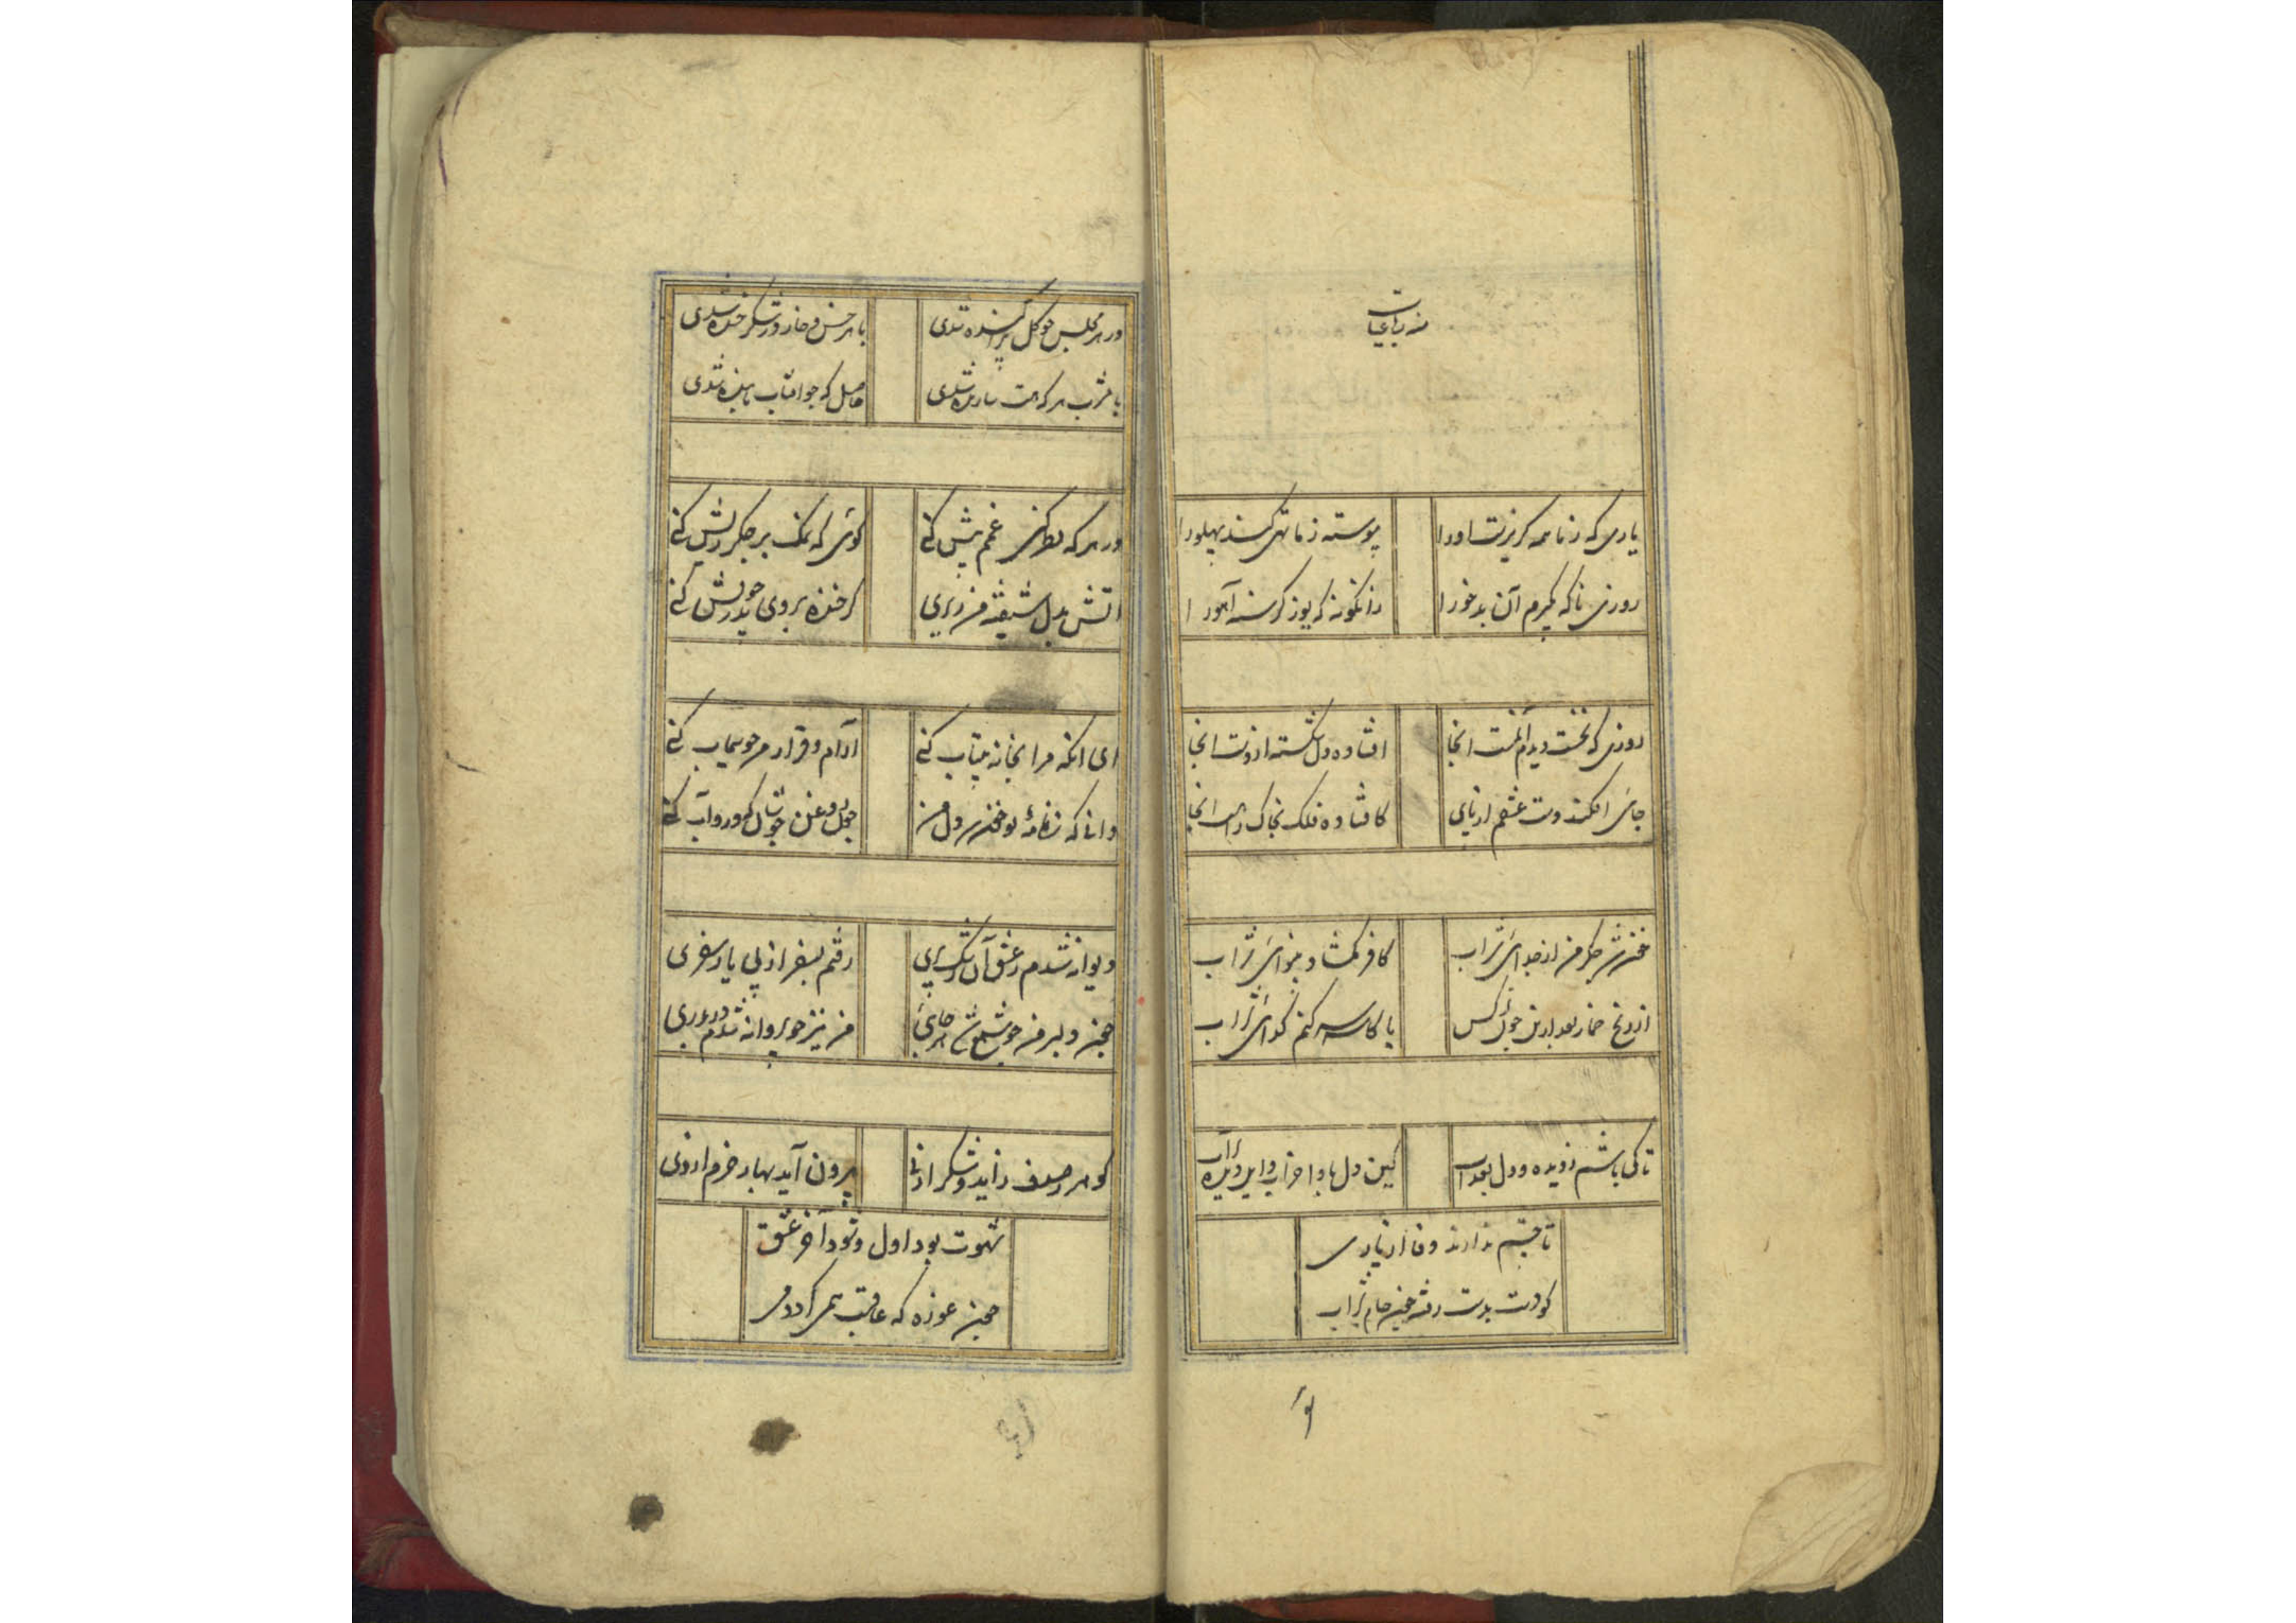 منه رباعیات
یاری که ز ما همه گریزست او را
پیوسته ز ما تهی کند پهلو را
روزی ناگه بگیرم آن بدخو را
زانگونه که یوز گرسنه آهو را
روزی که نخست دیدم الست انجا
افتاده دل شکسته از دست انجا
جائی افکند دست عشقم از پای
کافتاده فلک بخاک انجا
شد جگر من از جدائی شراب
کافر مشاد بینوائی شراب
از رنج خمار بعد ازین چون کس
با کاسه سر کنم گدائی شراب
تا کی باشم ز دیده و دل بعذاب
کین دل بادا خراب و این دیده پرآب
تا چشم ندارند وفا از یاری
کو دست بدست رفته همچون جام شراب
و
در هر مجلس چو گل پراکنده شدی
با هر خس و خار در شکر خنده شدی
با مشرب هر که هست سازنده شدی
حاصل که چو افتاب تابنده شدی
در هر که نظر کنی غمم بیش کنی
گوئی که نمک بر جگر ریش کنی
اتش بدل شیفته من زبری
گر خنده بروی بدر خویش کنی
ای انکه مرا بخانه بیتاب کنی
ارام و قرار من چو سیماب کنی
دانی که نظاره تو دل من
چون روغن جوشان که درو آب کنی
دیوانه شدم ز عشق آن رشک پری
رفتم بسفر از پی یار سفری
همچون دلبر من چو شمع شد هر جائی
من نیز چو پروانه شدم در بدری
گوهر ز صدف زاید و شکر از نی
بیرون آید بهار خرم از دی
شهوت بود اول و شود آخر عشق
همچون غوره که عاقبت همی گردد می